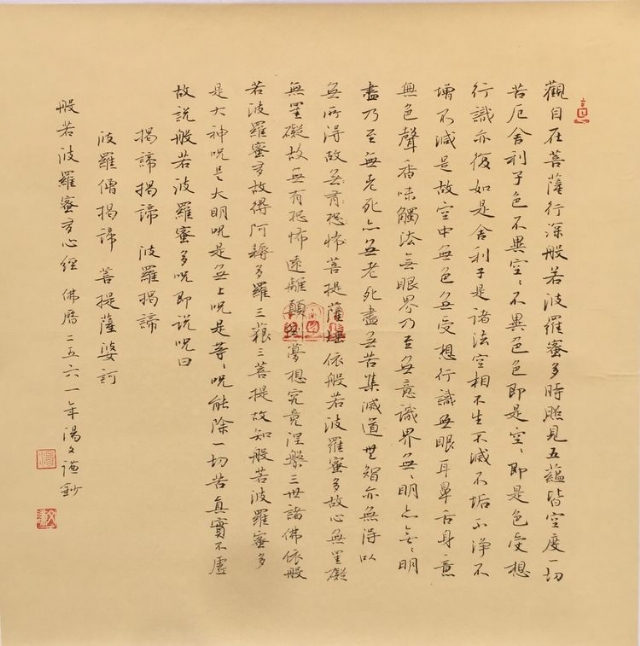 觀自在菩薩行深般若波羅蜜多時照見五蘊皆空度一切
苦厄舍利子色不異空〻不異色色即是空〻即是色受想
行識亦復如是舍利子是諸法空相不生不滅不垢不淨不
增不減是故空中無色無受想行識無眼耳鼻舌身意
無色聲香味觸法無眼界乃至無意識界無〻明亦無〻明
盡乃至無老死亦無老死盡無苦集滅道無智亦無得以
無所得故無有恐怖菩提薩埵依般若波羅蜜多故心無罣礙
無罣礙故無有恐怖遠離顛倒夢想究竟涅槃三世諸佛依般
若波羅蜜多故得阿耨多羅三藐三菩提故知般若波羅蜜多
是大神咒是大明咒是無上咒是等〻咒能除一切苦真實不虛
故說般若波羅蜜多咒即說咒曰
揭諦揭諦 波羅揭諦
波羅僧揭諦 菩提薩婆訶
般若波羅蜜多心經 佛曆二五六一年湯文鈔